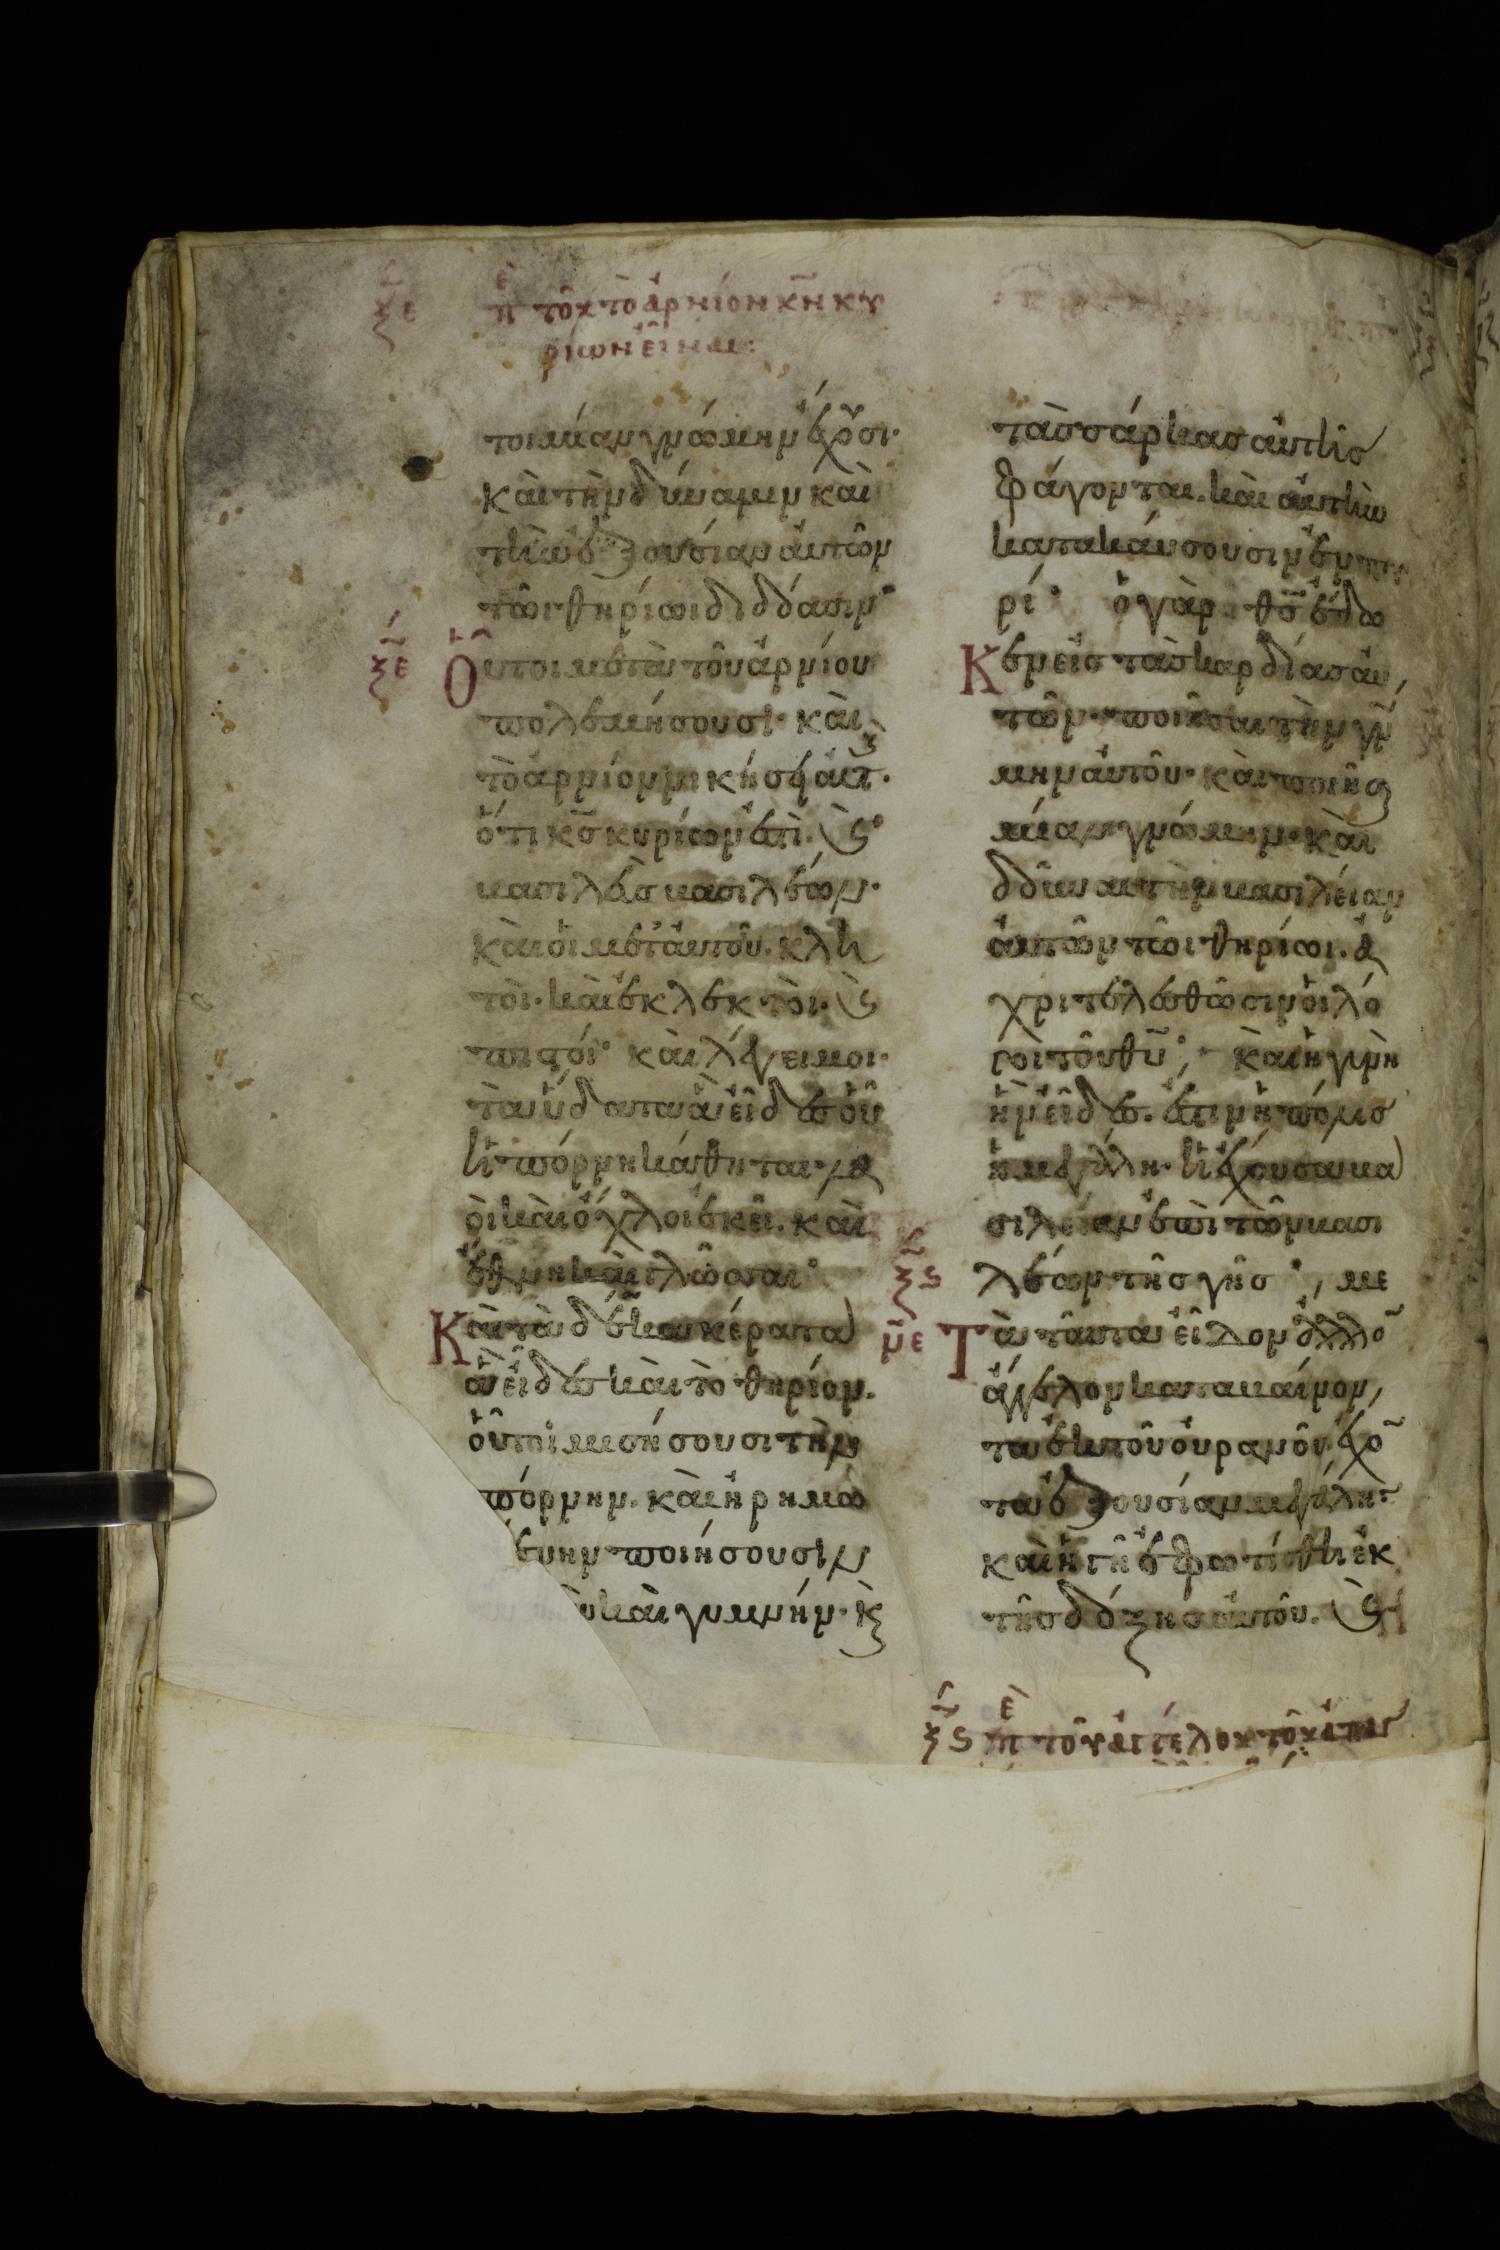 ξε πε τοῦ τὸ ἀρνίον κν κυ
ρίων εἶναι:
τοι μίαν γνώμην ἔχουσι·
καὶ τὴν δύναμιν καὶ
τὴν ἐξουσίαν αὐτῶν
τῶι θηρίωι διδόασιν·
ξε Οὗτοι μετὰ τοῦ ἀρνίου
πολεμήσουσι· καὶ
τὸ ἀρνίον νικήσει αὐτ·
ὅτι κς κυρίων ἐστὶ. καὶ
βασιλεὺς βασιλέων·
καὶ οἱ μετ' αὐτοῦ. κλη
τοὶ· καὶ ἐκλεκτοὶ· καὶ
πιστοί· καὶ λέγει μοι·
τὰ ὕδατα ἃ εἶδες οὗ
ἡ πόρνη κάθηται· λα
οὶ καὶ ὄχλοι ἐκεῖ. καὶ
ἔθνη καὶ γλῶσσαι·
Καὶ τὰ δέκα κέρατα
ἃ εἶδες καὶ τὸ θηρίον.
οὗτοι μισήσουσι τὴν
πόρνην. καὶ ἠρημω
ένην ποιήσουσιν
καὶ γυμνήν· κὶ
τὰς σάρκας αὐτῆς
φάγονται. καὶ αὐτὴν
κατακαύσουσιν ἐν πυ
ρί· ὁ γὰρ θς ἔδω
Κεν εἰς τὰς καρδίας αὐ
τῶν. ποιῆσαι τὴν γν
μην αὐτοῦ· καὶ ποιῆσαι
μίαν γνώμην· καὶ
δοῦναι τὴν βασιλείαν
αὐτῶν τῶι θηρίωι. ἄ
χρι τελεσθῶσιν οἱ λό
γοι τοῦ θυ· καὶ ἡ γυνὴ
ἣν εἶδες. ἔστιν ἡ πόλις
ἡ μεγάλη· ἡ ἔχουσα βα
σιλείαν ἐπὶ τῶν βασι
ξς λέων τῆς γῆς·, με
με Τὰ ταῦτα εἶδον ἄλλο
ἄγγελον καταβαίνον,
τα ἐκ τοῦ οὐρανοῦ· ἔχο
τα ἐξουσίαν μεγάλην·
καὶ ἡ γῆ ἐφωτίσθη ἐκ
τῆς δόξης αὐτοῦ. καὶ
ξς πε τοῦ ἀγγέλου τοῦ